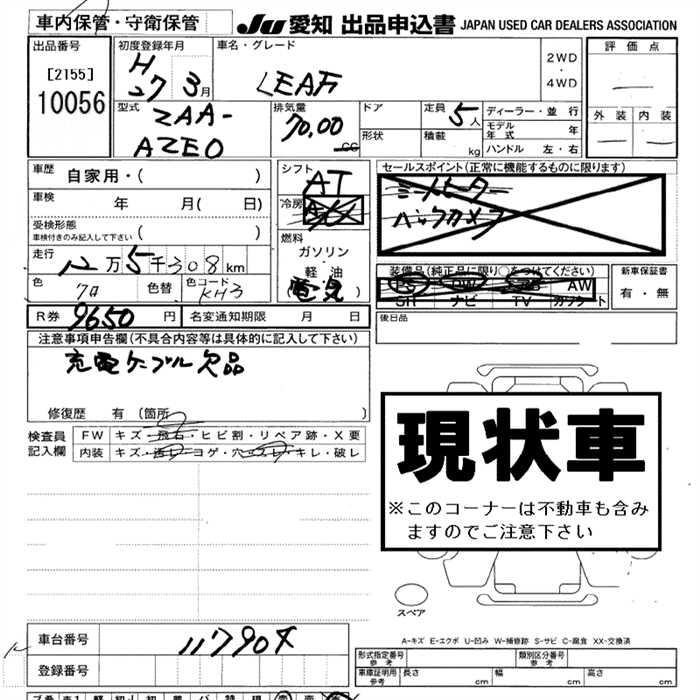 車内保管・守衛保管
JU 愛知 出品申込書 JAPAN USED CAR DEALERS ASSOCIATION
出品番号
[2155]
10056
初度登録年月
H 27 3月
車名・グレード
LEAF
2WD
・
4WD
評価点
外装 内装
型式
ZAA-
AZE0
排気量
70.00
cc
ドア
形状
定員 5人
積載 kg
ディーラー・並行
モデル年式 年
ハンドル 左・右
車歴 自家用・( )
車検 年 月( 日)
受検形態
車検付きのみ記入して下さい ( )
走行 12万5千308km
色 クロ 色替 色コード KH3
シフト
AT
冷房
AC
燃料
ガソリン
軽油
(電気)
セールスポイント(正常に機能するものに限ります)
ミートヒーター
バックカメラ
装備品(純正品に限り○をつけてください)
PS PW AB AW
SR ナビ TV カワシート
新車保証書
有・無
R券 9650円 名変通知期限 月 日
後日品
注意事項申告欄(不具合内容等は具体的に記入して下さい)
充電ケーブル欠品
修復歴 有(箇所 )
検査員
記入欄
FW キズ・飛石・ヒビ割・リペア跡・X要
内装 キズ・汚レ・コゲ・穴・スレ・キレ・破レ
現状車
※このコーナーは不動車も含み
ますのでご注意下さい
スペア
A-キズ E-エクボ U-凹み W-補修跡 S-サビ C-腐食 XX-交換済
車台番号 117904
登録番号
形式指定番号 参考
類別区分番号 参考
車庫証明用 参考 長さ cm 幅 cm 高さ cm